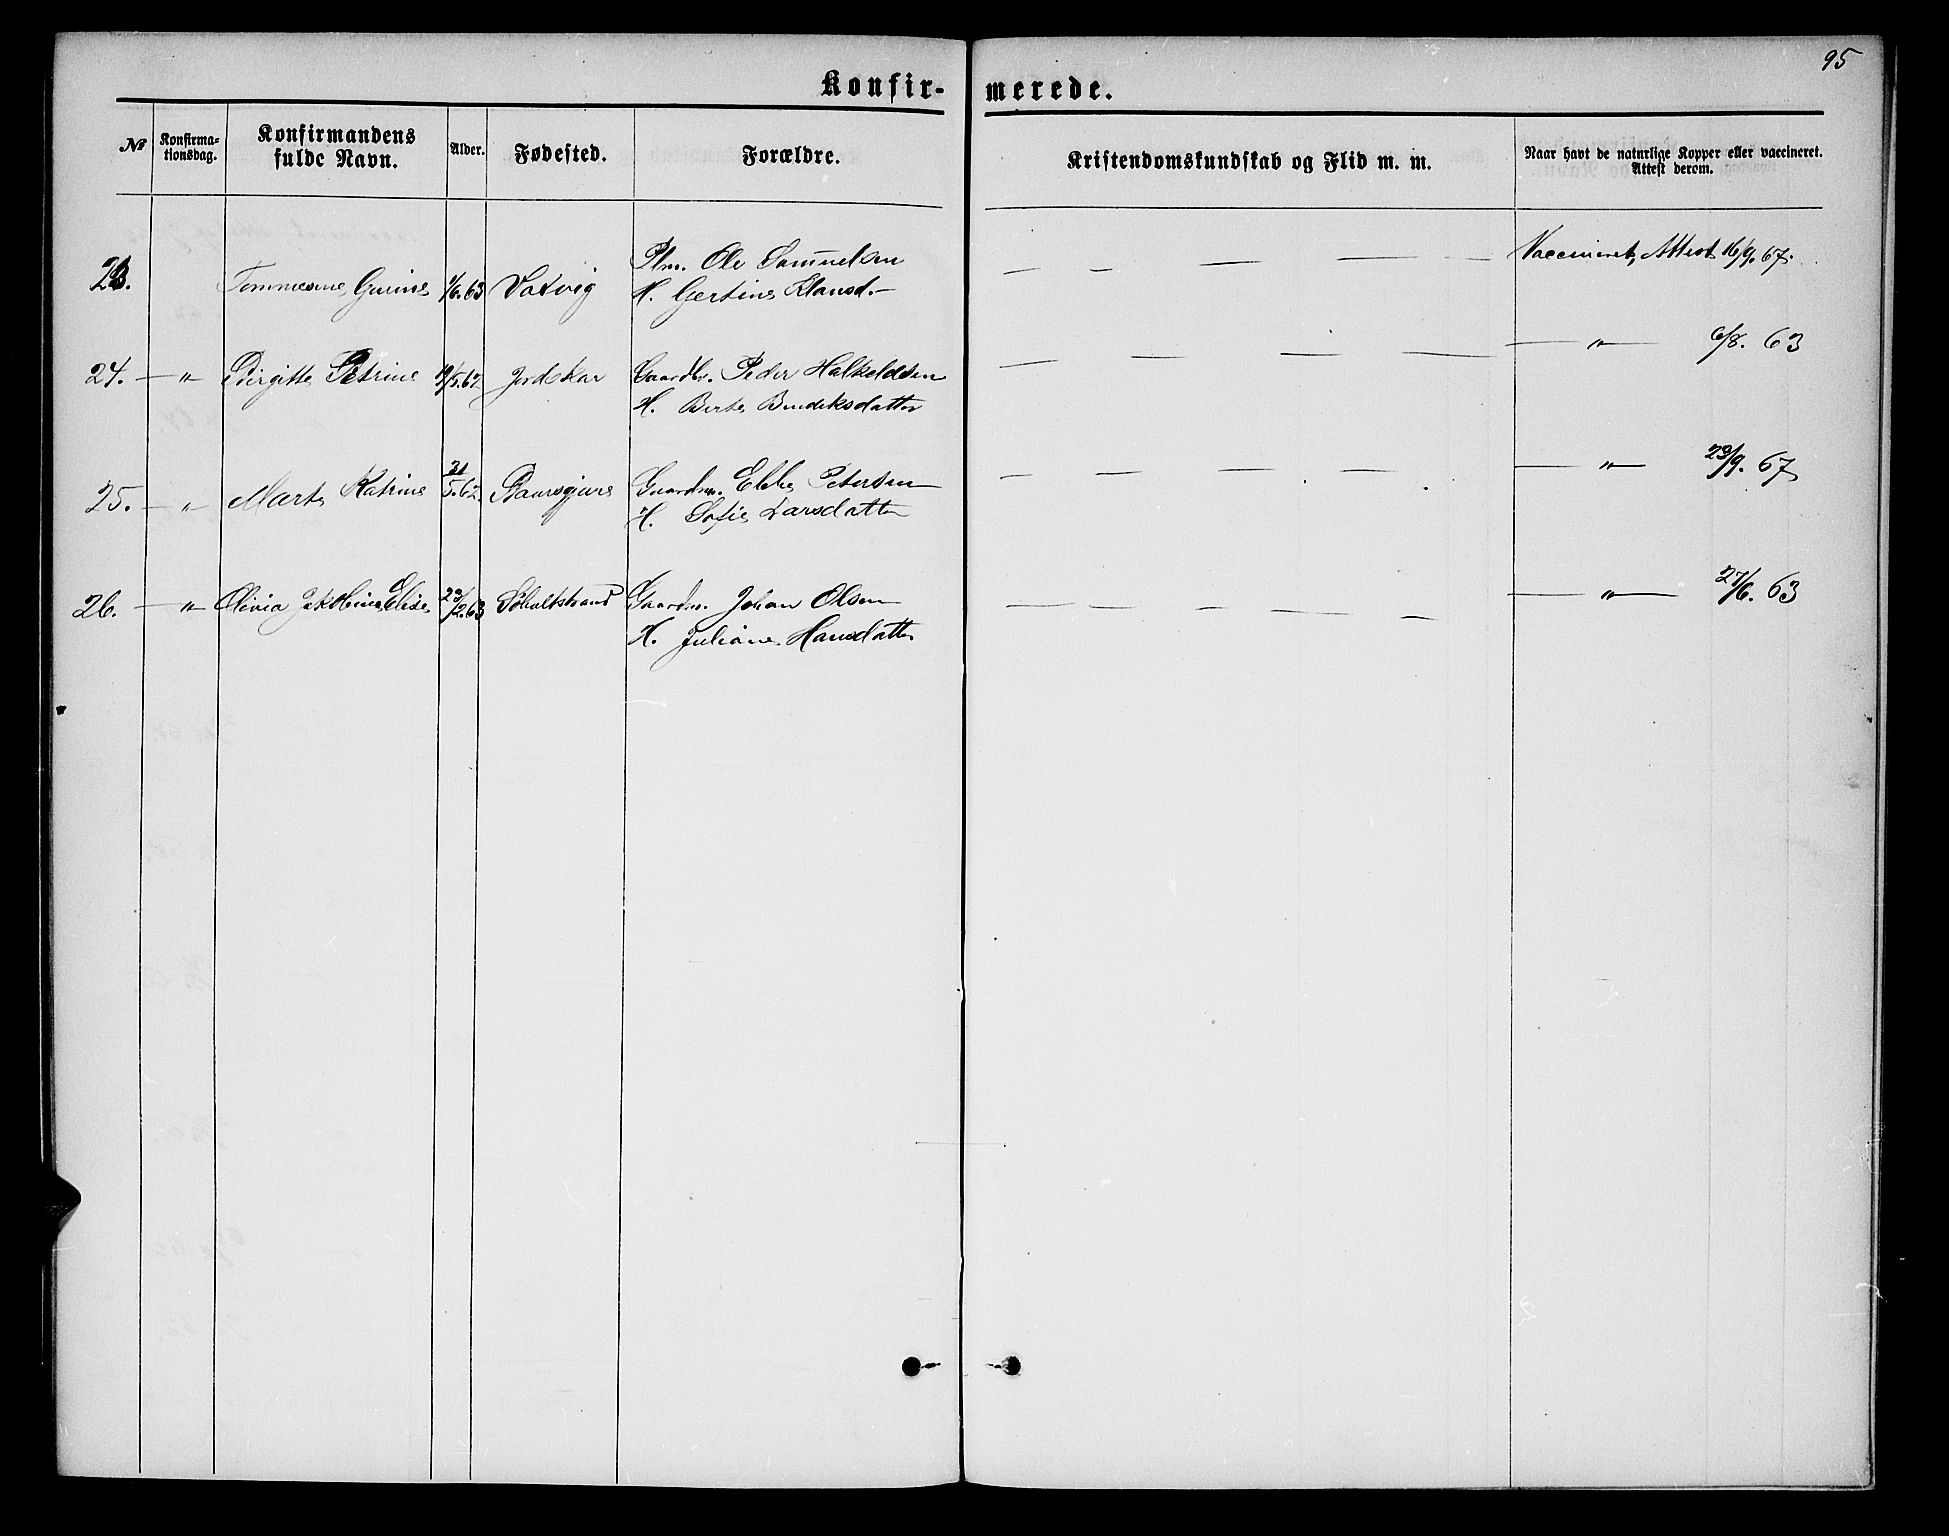 95
Konfirmerede.
№
Konfirma-
tionsdag.
Konfirmandens
fulde Navn.
Alder.
Fødested.
Forældre.
Kristendomskundskab og Flid m. m.
Naar havt de naturlige Kopper eller vaccineret.
Attest derom.
Plm. Ole Samuelsen
Vaccineret, Attest 16/9. 67.
23. Gurine 1/6.63 Vatvig H. Gertine Klausd.
24. — „ Birgitte Petrine 19/5.62 Jordskar Gaardbr. Peder Halkeldsen
H. Berte Bendiksdatter
— „ — 6/8. 63
25. — „ Marte Katrine 31/5.62. Gaardm. Ebbe Petersen
H. Sofie Larsdatter
— „ — 23/9. 67
26. — „ Olivia Jakobine Elise 23/2.63 Sholtstrand Gaardm. Johan Olsen
H. Juliane Hansdatter
— „ — 27/6. 63